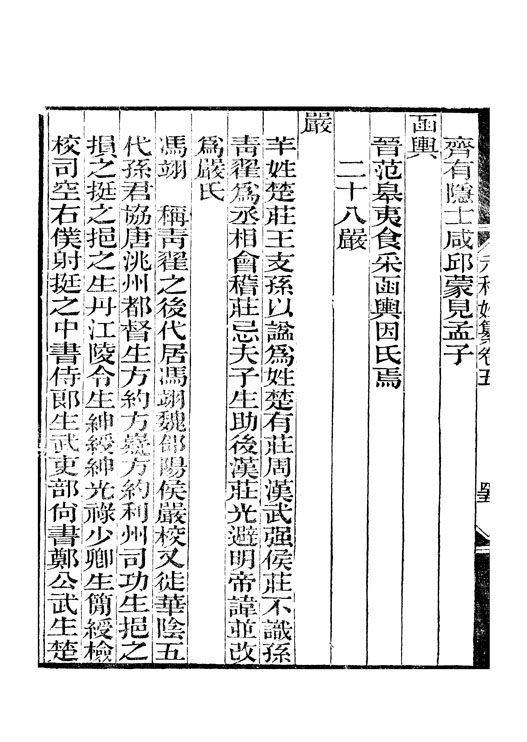 元和姓纂卷五
齊有隱士咸邱蒙見孟子
函輿
晉范臯夷食采函輿因氏焉
二十八嚴
嚴
芉姓楚莊王支孫以諡爲姓楚有莊周漢武强侯莊不識孫
靑翟爲丞相會稽莊忌夫子生助後漢莊光避明帝諱並改
爲嚴氏
馮翊　稱靑翟之後代居馮翊魏郃陽侯嚴校又徙華陰五
代孫君協唐洮州都督生方約方嶷方約利州司功生挹之
損之挺之挹之生丹江陵令生紳綬紳光祿少卿生簡綬檢
校司空右僕射挺之中書侍郞生武吏部尙書鄭公武生楚